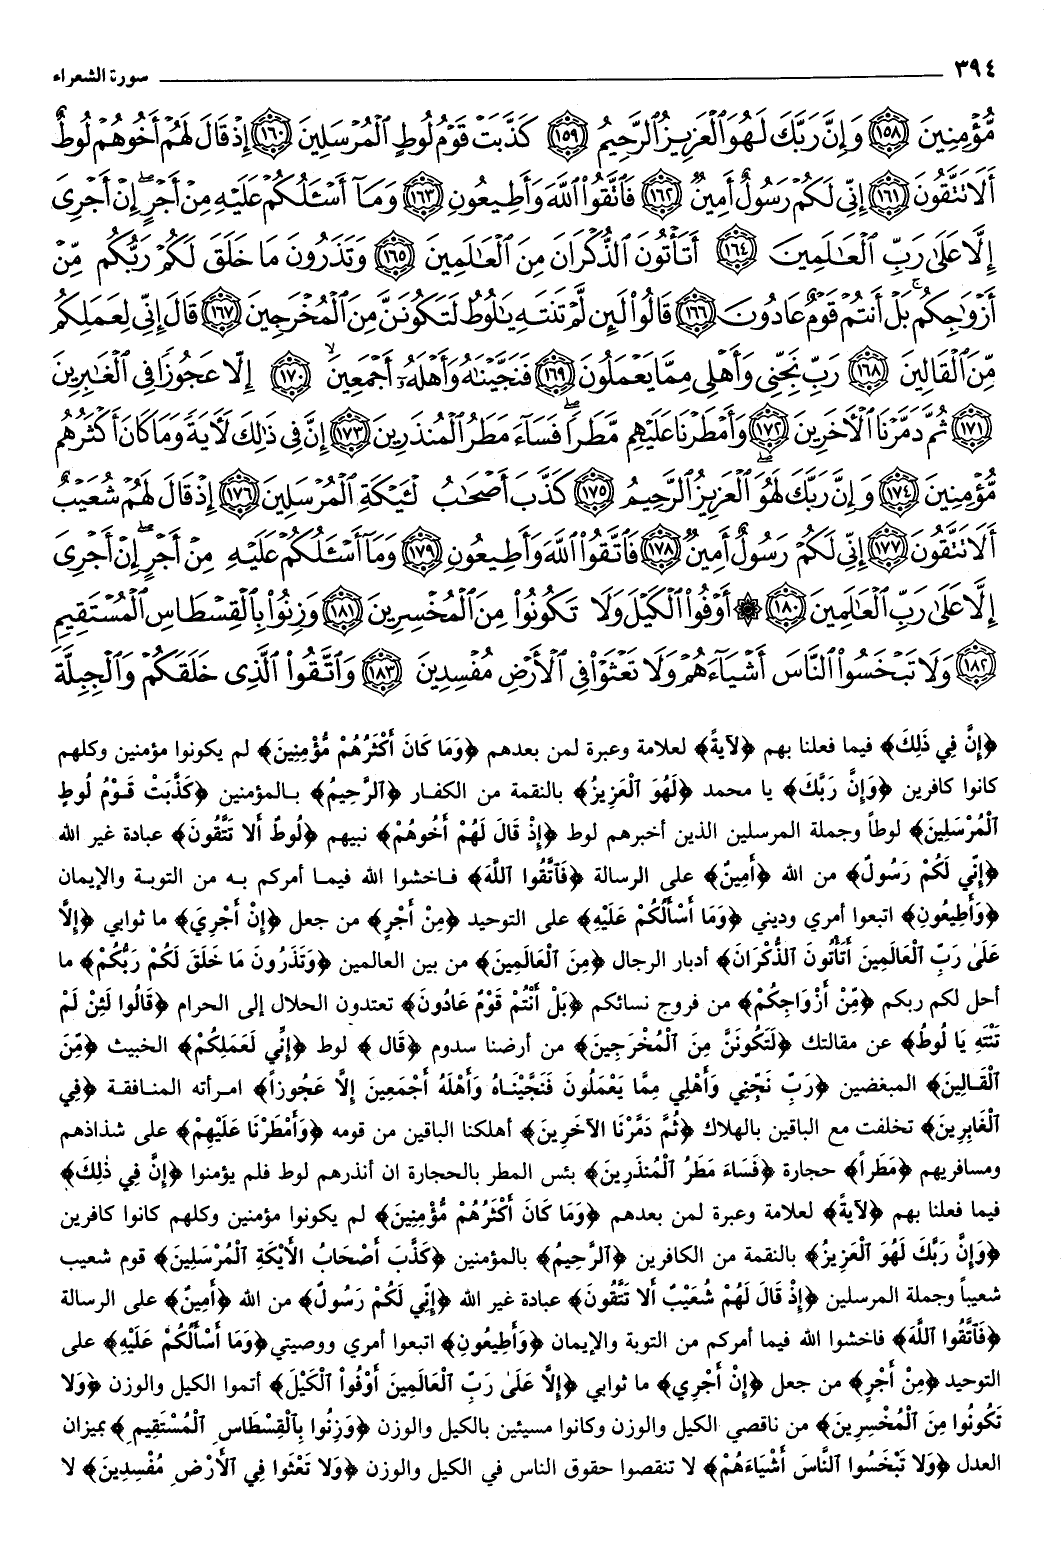 ٣٩٤ سورة الشعراء
مُّؤْمِنِينَ ١٥٨ وَإِنَّ رَبَّكَ لَهُوَ ٱلْعَزِيزُ ٱلرَّحِيمُ ١٥٩ كَذَّبَتْ قَوْمُ لُوطٍ ٱلْمُرْسَلِينَ ١٦٠ إِذْ قَالَ لَهُمْ أَخُوهُمْ لُوطٌ
أَلَا تَتَّقُونَ ١٦١ إِنِّى لَكُمْ رَسُولٌ أَمِينٌ ١٦٢ فَٱتَّقُوا۟ ٱللَّهَ وَأَطِيعُونِ ١٦٣ وَمَآ أَسْـَٔلُكُمْ عَلَيْهِ مِنْ أَجْرٍ ۖ إِنْ أَجْرِىَ
إِلَّا عَلَىٰ رَبِّ ٱلْعَـٰلَمِينَ ١٦٤ أَتَأْتُونَ ٱلذُّكْرَانَ مِنَ ٱلْعَـٰلَمِينَ ١٦٥ وَتَذَرُونَ مَا خَلَقَ لَكُمْ رَبُّكُم مِّنْ
أَزْوَٰجِكُم ۚ بَلْ أَنتُمْ قَوْمٌ عَادُونَ ١٦٦ قَالُوا۟ لَئِن لَّمْ تَنتَهِ يَـٰلُوطُ لَتَكُونَنَّ مِنَ ٱلْمُخْرَجِينَ ١٦٧ قَالَ إِنِّى لِعَمَلِكُم
مِّنَ ٱلْقَالِينَ ١٦٨ رَبِّ نَجِّنِى وَأَهْلِى مِمَّا يَعْمَلُونَ ١٦٩ فَنَجَّيْنَـٰهُ وَأَهْلَهُۥٓ أَجْمَعِينَ ۙ ١٧٠ إِلَّا عَجُوزًا فِى ٱلْغَـٰبِرِينَ
١٧١ ثُمَّ دَمَّرْنَا ٱلْـَٔاخَرِينَ ١٧٢ وَأَمْطَرْنَا عَلَيْهِم مَّطَرًا ۖ فَسَآءَ مَطَرُ ٱلْمُنذَرِينَ ١٧٣ إِنَّ فِى ذَٰلِكَ لَـَٔايَةً ۖ وَمَا كَانَ أَكْثَرُهُم
مُّؤْمِنِينَ ١٧٤ وَإِنَّ رَبَّكَ لَهُوَ ٱلْعَزِيزُ ٱلرَّحِيمُ ١٧٥ كَذَّبَ أَصْحَـٰبُ لْـَٔيْكَةِ ٱلْمُرْسَلِينَ ١٧٦ إِذْ قَالَ لَهُمْ شُعَيْبٌ
أَلَا تَتَّقُونَ ١٧٧ إِنِّى لَكُمْ رَسُولٌ أَمِينٌ ١٧٨ فَٱتَّقُوا۟ ٱللَّهَ وَأَطِيعُونِ ١٧٩ وَمَآ أَسْـَٔلُكُمْ عَلَيْهِ مِنْ أَجْرٍ ۖ إِنْ أَجْرِىَ
إِلَّا عَلَىٰ رَبِّ ٱلْعَـٰلَمِينَ ١٨٠ ۞ أَوْفُوا۟ ٱلْكَيْلَ وَلَا تَكُونُوا۟ مِنَ ٱلْمُخْسِرِينَ ١٨١ وَزِنُوا۟ بِٱلْقِسْطَاسِ ٱلْمُسْتَقِيمِ
١٨٢ وَلَا تَبْخَسُوا۟ ٱلنَّاسَ أَشْيَآءَهُمْ وَلَا تَعْثَوْا۟ فِى ٱلْأَرْضِ مُفْسِدِينَ ١٨٣ وَٱتَّقُوا۟ ٱلَّذِى خَلَقَكُمْ وَٱلْجِبِلَّةَ
﴿إِنَّ فِي ذَلِكَ﴾ فيما فعلنا بهم ﴿لآيَةً﴾ لعلامة وعبرة لمن بعدهم ﴿وَمَا كَانَ أَكْثَرُهُمْ مُّؤْمِنِينَ﴾ لم يكونوا مؤمنين وكلهم
كانوا كافرين ﴿وَإِنَّ رَبَّكَ﴾ يا محمد ﴿لَهُوَ ٱلْعَزِيزُ﴾ بالنقمة من الكفار ﴿ٱلرَّحِيمُ﴾ بـالمؤمنين ﴿كَذَّبَتْ قَوْمُ لُوطٍ
ٱلْمُرْسَلِينَ﴾ لوطاً وجملة المرسلين الذين أخبرهم لوط ﴿إِذْ قَالَ لَهُمْ أَخُوهُمْ﴾ نبيهم ﴿لُوطٌ أَلا تَتَّقُونَ﴾ عبادة غير الله
﴿إِنِّي لَكُمْ رَسُولٌ﴾ من الله ﴿أَمِينٌ﴾ على الرسالة ﴿فَٱتَّقُوا ٱللَّهَ﴾ فـاخشوا الله فيمـا أمركم بـه من التوبـة والإيمان
﴿وَأَطِيعُونِ﴾ اتبعوا أمري وديني ﴿وَمَا أَسْأَلُكُمْ عَلَيْهِ﴾ على التوحيد ﴿مِنْ أَجْرٍ﴾ من جعل ﴿إِنْ أَجْرِيَ﴾ ما ثوابي ﴿إِلَّا
عَلَىٰ رَبِّ ٱلْعَالَمِينَ أَتَأْتُونَ ٱلذُّكْرَانَ﴾ أدبار الرجال ﴿مِنَ ٱلْعَالَمِينَ﴾ من بين العالمين ﴿وَتَذَرُونَ مَا خَلَقَ لَكُمْ رَبُّكُمْ﴾ ما
أحل لكم ربكم ﴿مِّنْ أَزْوَاجِكُمْ﴾ من فروج نسائكم ﴿بَلْ أَنْتُمْ قَوْمٌ عَادُونَ﴾ تعتدون الحلال إلى الحرام ﴿قَالُوا لَئِنْ لَمْ
تَنْتَهِ يَا لُوطُ﴾ عن مقالتك ﴿لَتَكُونَنَّ مِنَ ٱلْمُخْرَجِينَ﴾ من أرضنا سدوم ﴿قَالَ﴾ لوط ﴿إِنِّي لَعَمَلِكُمْ﴾ الخبيث ﴿مِّنَ
ٱلْقَـالِينَ﴾ المبغضين ﴿رَبِّ نَجِّنِي وَأَهْلِي مِمَّا يَعْمَلُونَ فَنَجَّيْنَاهُ وَأَهْلَهُ أَجْمَعِينَ إِلَّا عَجُوزاً﴾ امـرأته المنـافقـة ﴿فِي
ٱلْغَابِرِينَ﴾ تخلفت مع الباقين بالهلاك ﴿ثُمَّ دَمَّرْنَا الآخَرِينَ﴾ أهلكنا الباقين من قومه ﴿وَأَمْطَرْنَا عَلَيْهِمْ﴾ على شذاذهم
ومسافريهم ﴿مَطَراً﴾ حجارة ﴿فَسَاءَ مَطَرُ ٱلْمُنذَرِينَ﴾ بئس المطر بالحجارة ان أنذرهم لوط فلم يؤمنوا ﴿إِنَّ فِي ذٰلِكَ﴾
فيما فعلنا بهم ﴿لآيَةً﴾ لعلامة وعبرة لمن بعدهم ﴿وَمَا كَانَ أَكْثَرُهُمْ مُّؤْمِنِينَ﴾ لم يكونوا مؤمنين وكلهم كانوا كافرين
﴿وَإِنَّ رَبَّكَ لَهُوَ ٱلْعَزِيزُ﴾ بالنقمة من الكافرين ﴿ٱلرَّحِيمُ﴾ بالمؤمنين ﴿كَذَّبَ أَصْحَابُ الأَيْكَةِ ٱلْمُرْسَلِينَ﴾ قوم شعيب
شعيباً وجملة المرسلين ﴿إِذْ قَالَ لَهُمْ شُعَيْبٌ أَلا تَتَّقُونَ﴾ عبادة غير الله ﴿إِنِّي لَكُمْ رَسُولٌ﴾ من الله ﴿أَمِينٌ﴾ على الرسالة
﴿فَٱتَّقُوا ٱللَّهَ﴾ فاخشوا الله فيما أمركم من التوبة والإيمان ﴿وَأَطِيعُونِ﴾ اتبعوا أمري ووصيتي ﴿وَمَا أَسْأَلُكُمْ عَلَيْهِ﴾ على
التوحيد ﴿مِنْ أَجْرٍ﴾ من جعل ﴿إِنْ أَجْرِي﴾ ما ثوابي ﴿إِلَّا عَلَىٰ رَبِّ ٱلْعَالَمِينَ أَوْفُواْ ٱلْكَيْلَ﴾ أتموا الكيل والوزن ﴿وَلَا
تَكُونُوا مِنَ ٱلْمُخْسِرِينَ﴾ من ناقصي الكيل والوزن وكانوا مسيئين بالكيل والوزن ﴿وَزِنُوا بِٱلْقِسْطَاسِ ٱلْمُسْتَقِيمِ﴾ بميزان
العدل ﴿وَلَا تَبْخَسُوا ٱلنَّاسَ أَشْيَاءَهُمْ﴾ لا تنقصوا حقوق الناس في الكيل والوزن ﴿وَلَا تَعْثَوا فِي ٱلأَرْضِ مُفْسِدِينَ﴾ لا